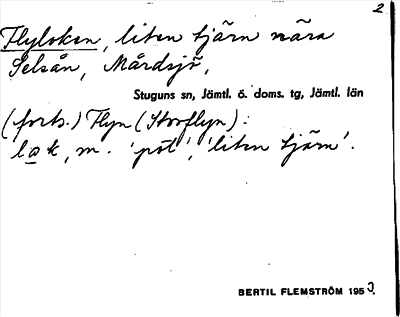 2
Flyloken, liten tjärn nära
Selsån, Mårdsjö,
Stuguns sn, Jämtl. ö. doms. tg, Jämtl. län
(forts.) Flyn (Storflyn):
lak, m. 'pöt', 'liten tjärn'.
BERTIL FLEMSTRÖM 1953.